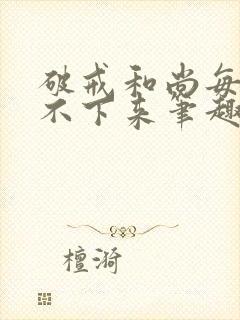 破戒和尚每
不下来笔趣
檀漪